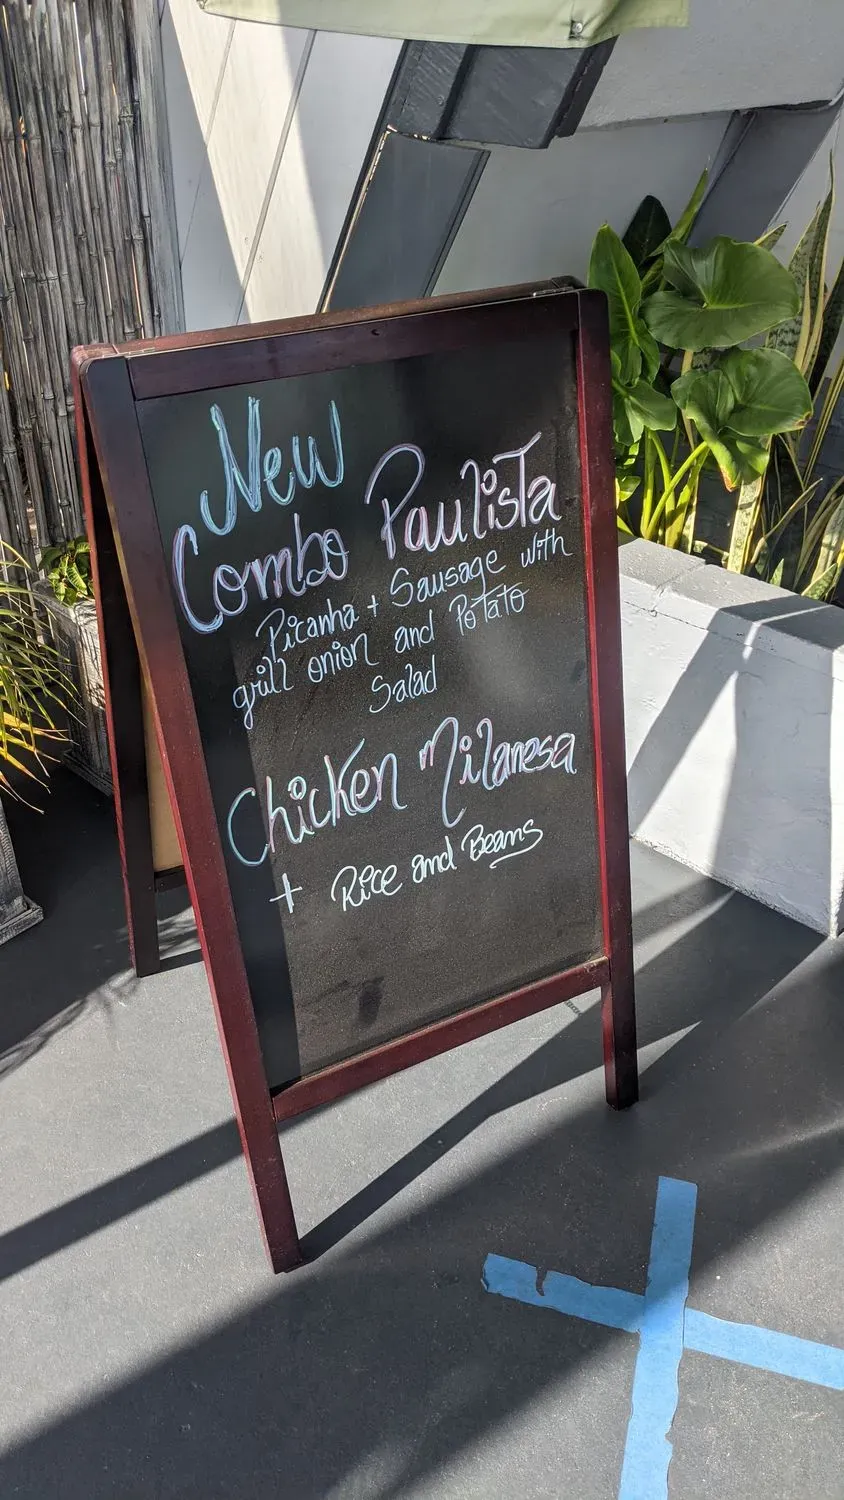 New
Combo Paulista
Picanha + Sausage with
grill onion and Potato
Salad
Chicken Milanesa
+ Rice and Beans